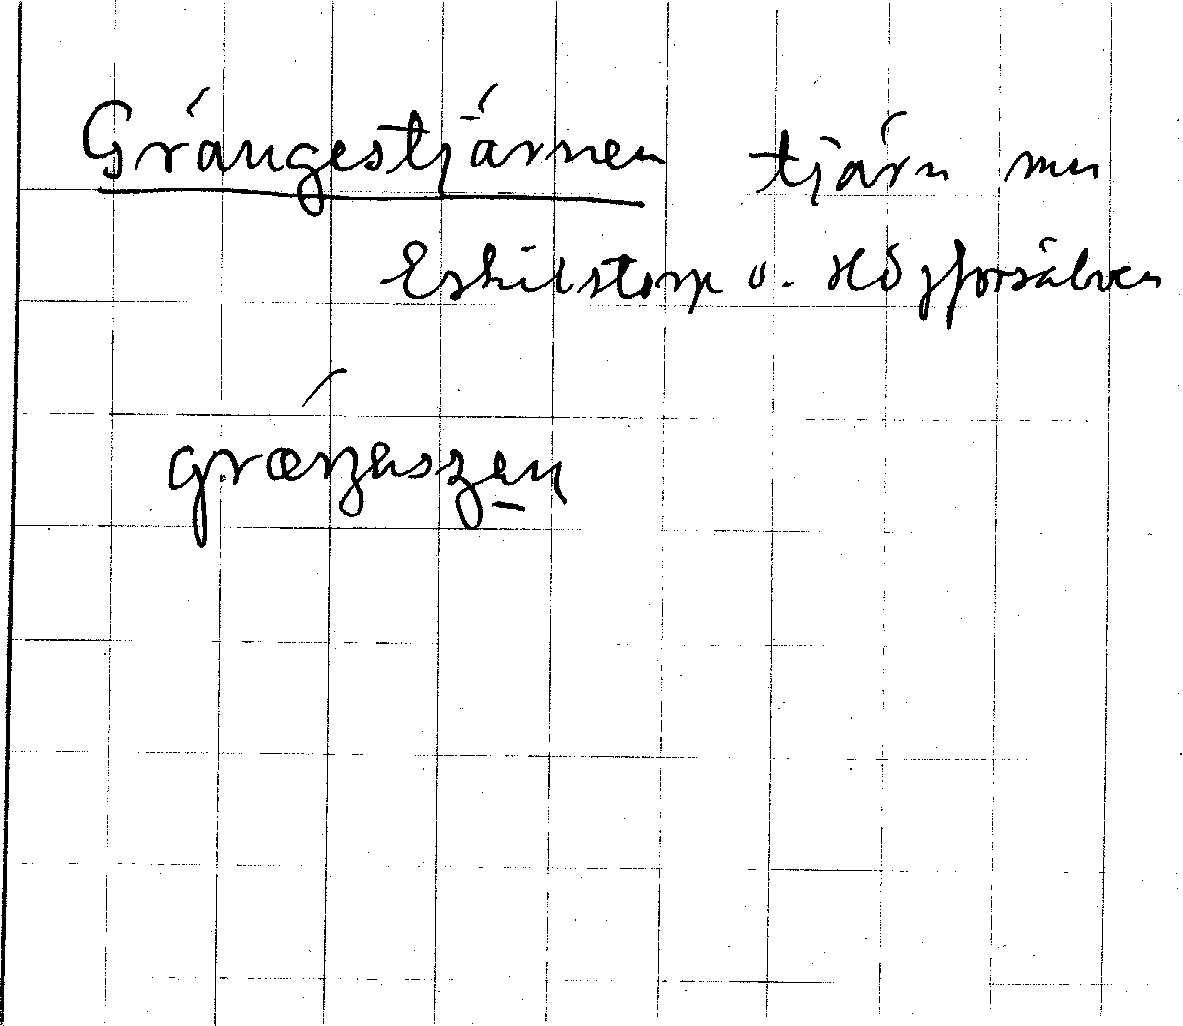 Grängestjärnen tjärn mn
Eskilstorp o. Högforsälven
grænjesʒen